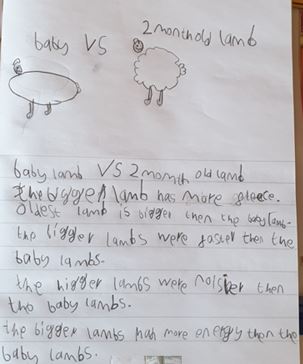 baby VS 2 month old lamb
baby lamb VS 2 month old lamb
the bigger lamb has more fleece.
oldest lamb is bigger then the baby lamb.
the bigger lambs were faster then the
baby lambs.
the bigger lambs were noisier then
the baby lambs.
the bigger lambs had more energy then the
baby lambs.